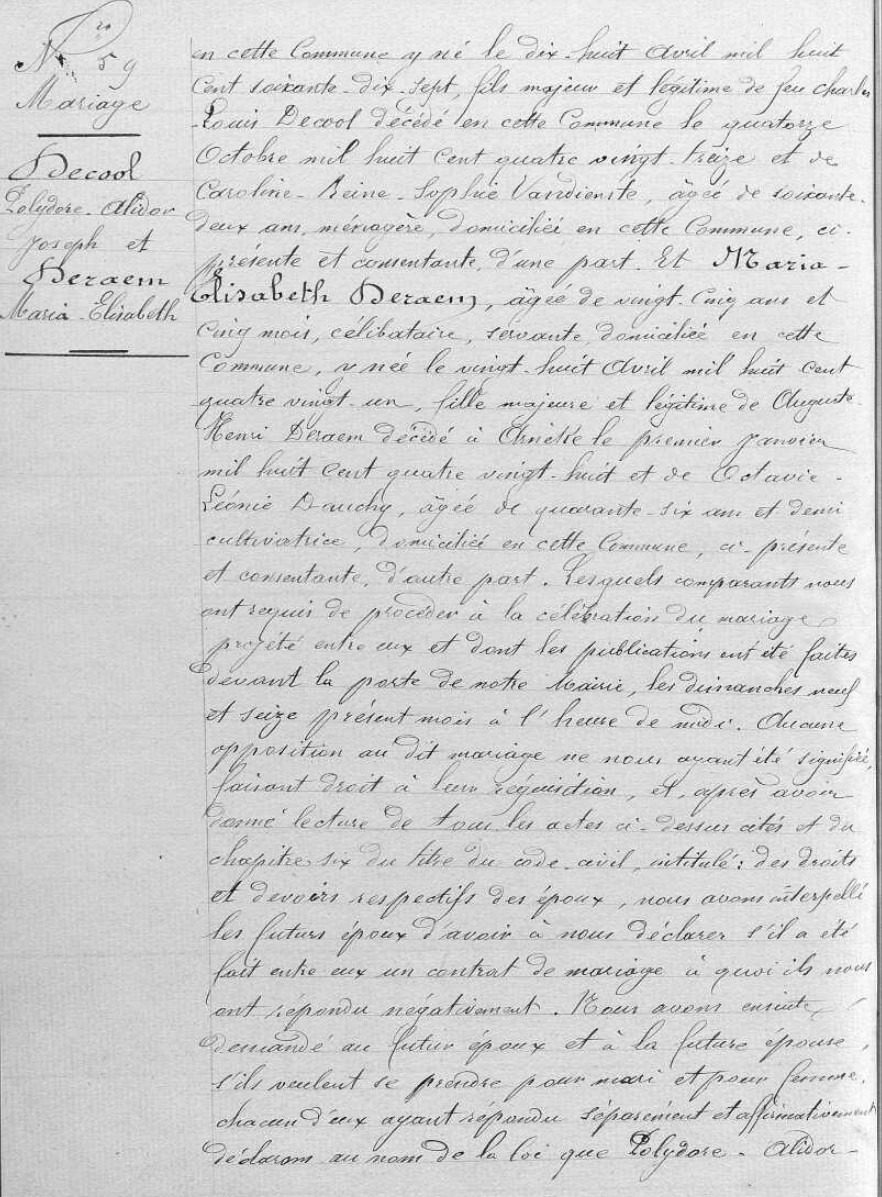 N° 59
Mariage
Decool
Polydore-Alidor
Joseph et
Deraem
Maria-Elisabeth
en cette Commune y né le dix-huit Avril mil huit
cent soixante-dix-sept, fils majeur et légitime de feu Charles
Louis Decool décédé en cette Commune le quatorze
Octobre mil huit cent quatre vingt-treize et de
Caroline-Reine-Sophie Vandienste, âgée de soixante-
deux ans, ménagère, domiciliée en cette Commune, ci-
présente et consentante, d'une part. Et Maria-
Elisabeth Deraem, âgée de vingt-cinq ans et
cinq mois, célibataire, servante, domiciliée en cette
Commune, y née le vingt-huit Avril mil huit cent
quatre vingt-un, fille majeure et légitime de Auguste-
Henri Deraem décédé à Arnèke le premier Janvier
mil huit cent quatre vingt-huit et de Octavie-
Léonie Dauchy, âgée de quarante-six ans et demi
cultivatrice, domiciliée en cette Commune, ci-présente
et consentante, d'autre part. Lesquels comparants nous
ont requis de procéder à la célébration du mariage
projété entre eux et dont les publications ont été faites
devant la porte de notre Mairie, les dimanches neuf
et seize présent mois à l'heure de midi. Aucune
opposition au dit mariage ne nous ayant été signifiée,
faisant droit à leur réquisition, et, après avoir
donné lecture de tous les actes ci-dessus cités et du
chapitre six du titre du code civil, intitulé: des droits
et devoirs respectifs des époux, nous avons interpellé
les futurs époux d'avoir à nous déclarer s'il a été
fait entre eux un contrat de mariage à quoi ils nous
ont répondu négativement. Nous avons ensuite,
demandé au futur époux et à la future épouse,
s'ils veulent se prendre pour mari et pour femme,
chacun d'eux ayant répondu séparement et affirmativement
déclarons au nom de la loi que Polydore-Alidor-